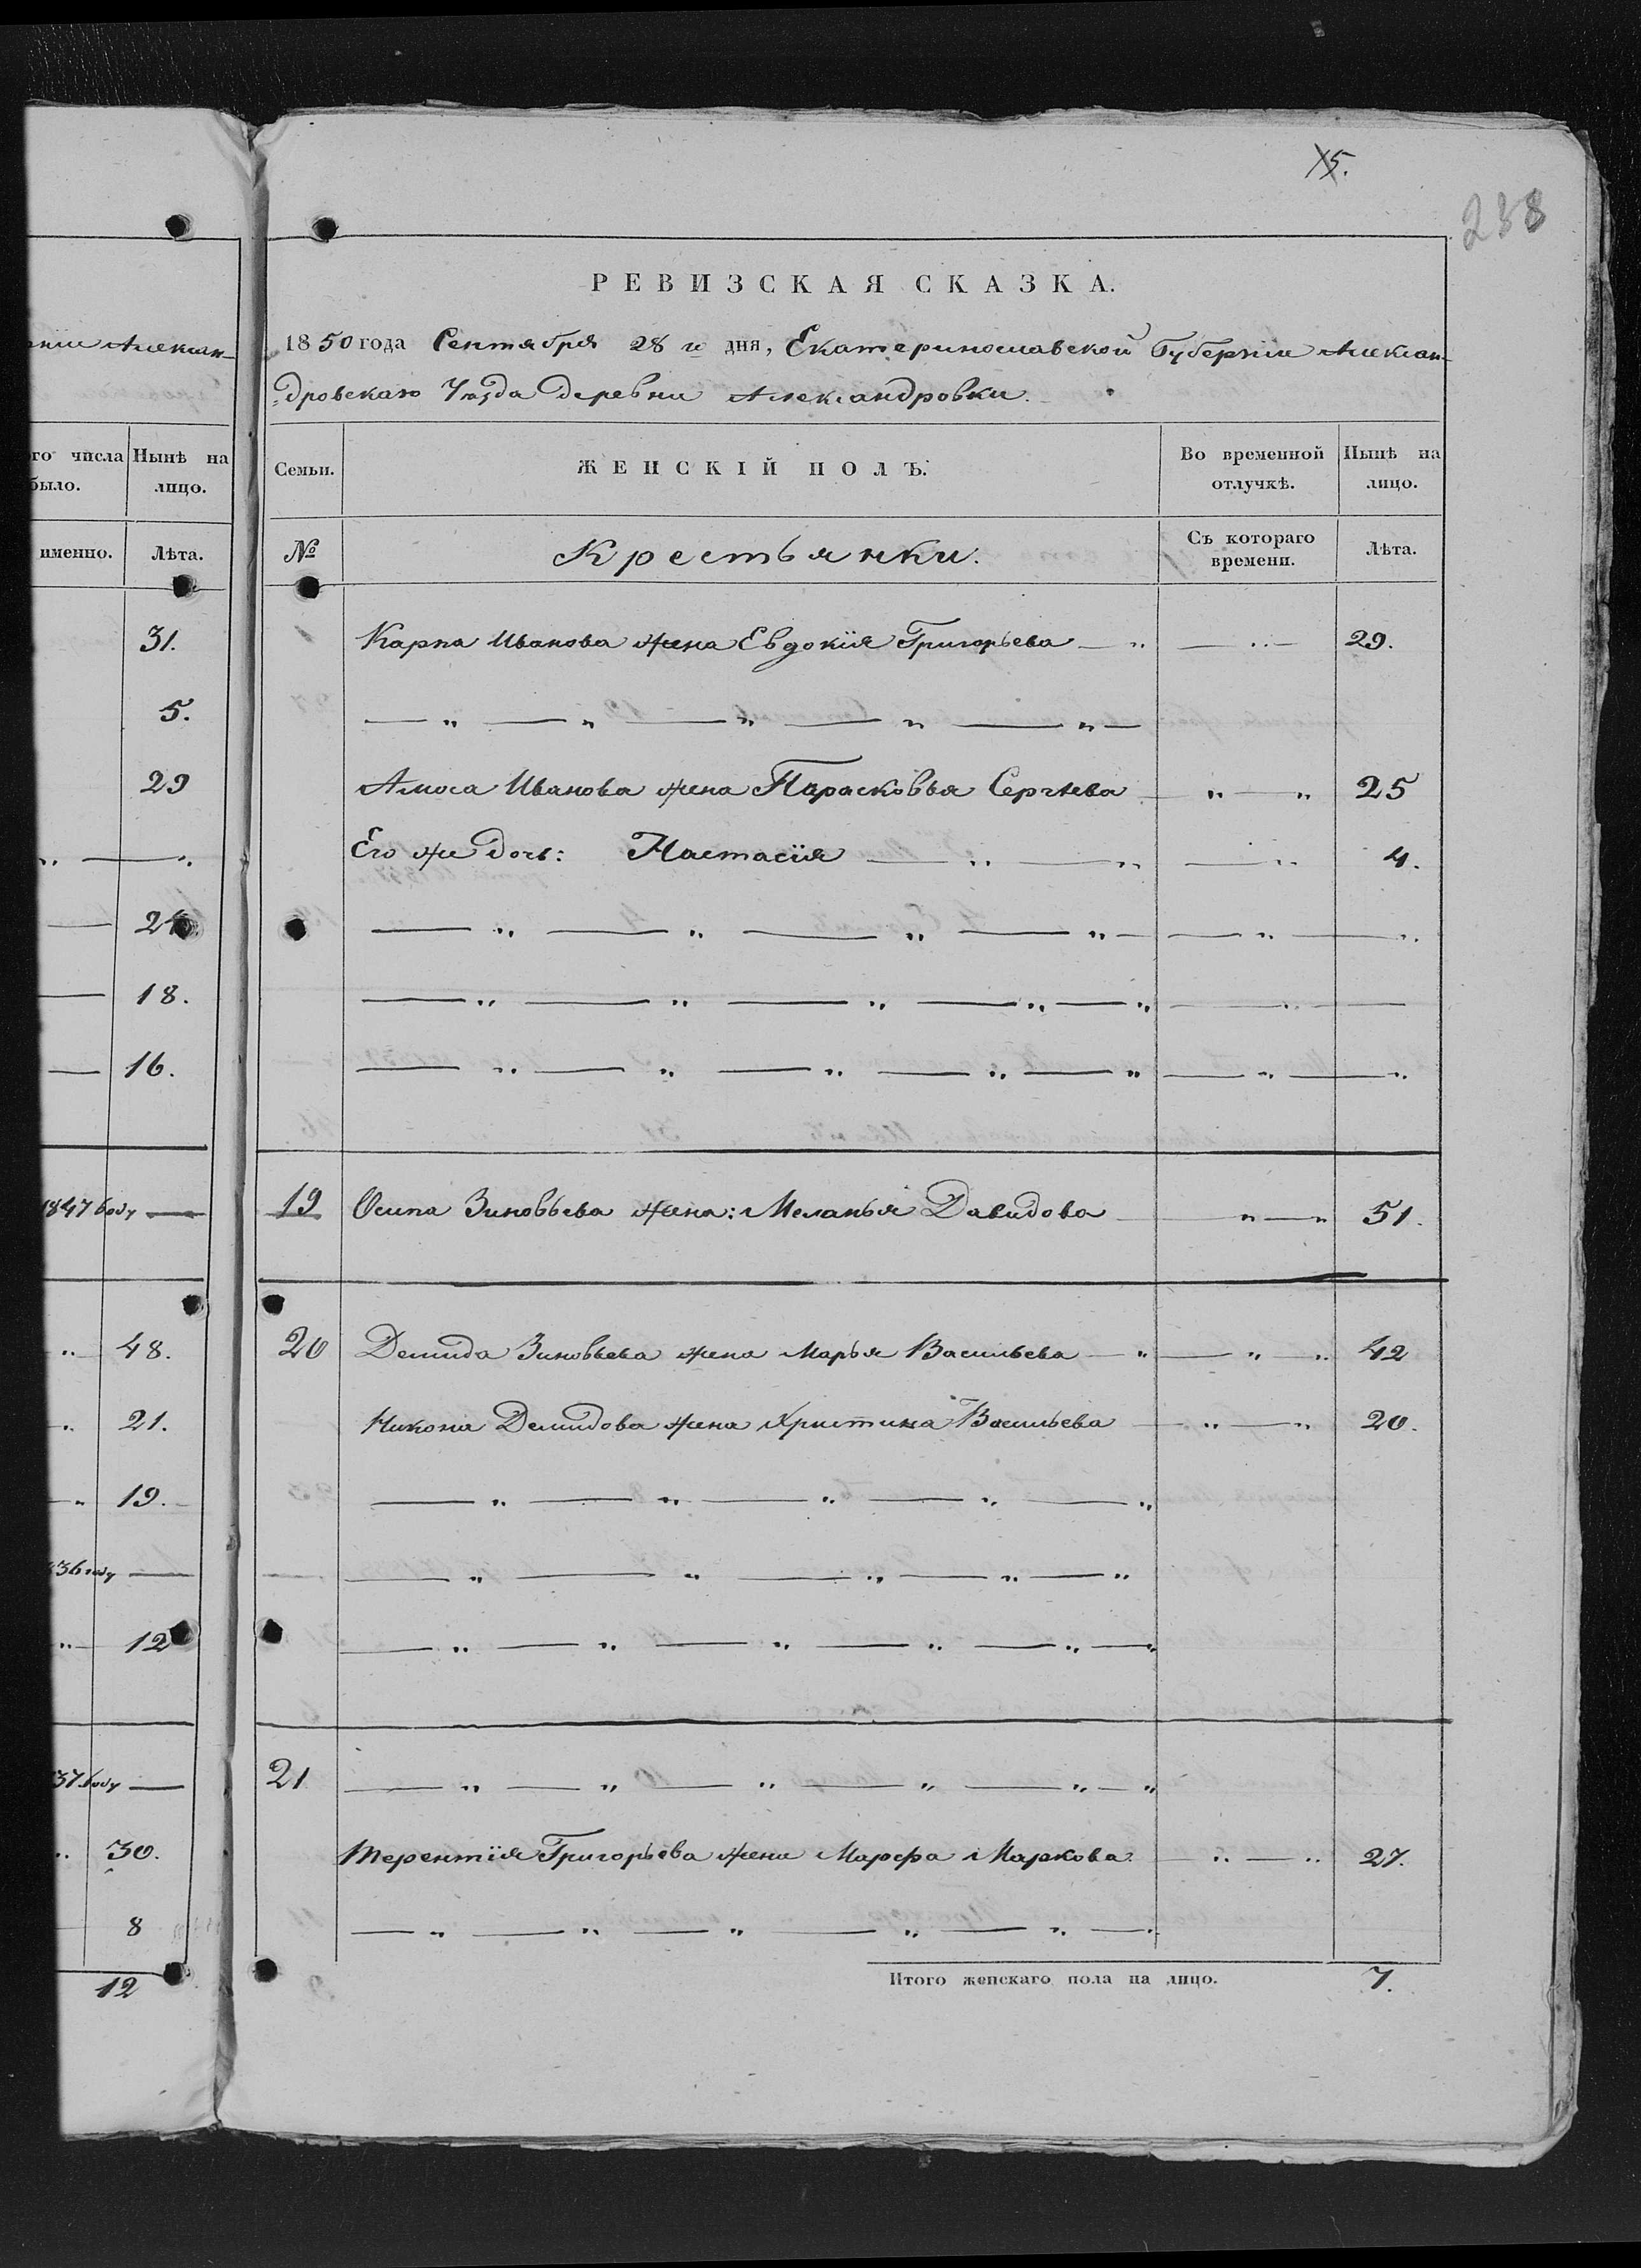 15.
238
нiи Алексан-
го числа
было.
Нынѣ на
лицо.
именно.
Лѣта.
31.
5.
29
24
18.
16.
1847 году
48.
21.
19.
36 году
12
37 году
30.
8
12
РЕВИЗСКАЯ СКАЗКА.
1850 года Сентября 28 го дня, Екатеринославской Губернiи Алексан-
дровскаго Уѣзда деревни Александровки.
Семьи.
ЖЕНСКIЙ ПОЛЪ.
Во временной
отлучкѣ.
Нынѣ на
лицо.
№
Крестьянки.
Съ котораго
времени.
Лѣта.
Карпа Иванова жена Евдокiя Григорьева — " — " — 29.
— " — " — " — " — " —
Амоса Иванова жена Парасковья Сергѣева " — " 25
Его же дочь: Настасiя — " — " — " 4.
— " — " — " — " — — " — "
— " — " — " — " — " — " —
— " — " — " — " — " — " — "
19 Осипа Зиновьева жена: Меланья Давидова — " — " 51.
20 Демида Зиновьева жена Марья Васильева — " — " — " 42
Никона Демидова жена Христина Васильева — " — " 20.
— " — " — " — " — "
— " — " — " — " — "
— " — " — " — " — " — "
21 — " — " — " — " — " — "
Терентiя Григорьева жена Марфа Маркова — " — " 27.
— " — " — " — " — " — "
Итого женскаго пола на лицо. 7.